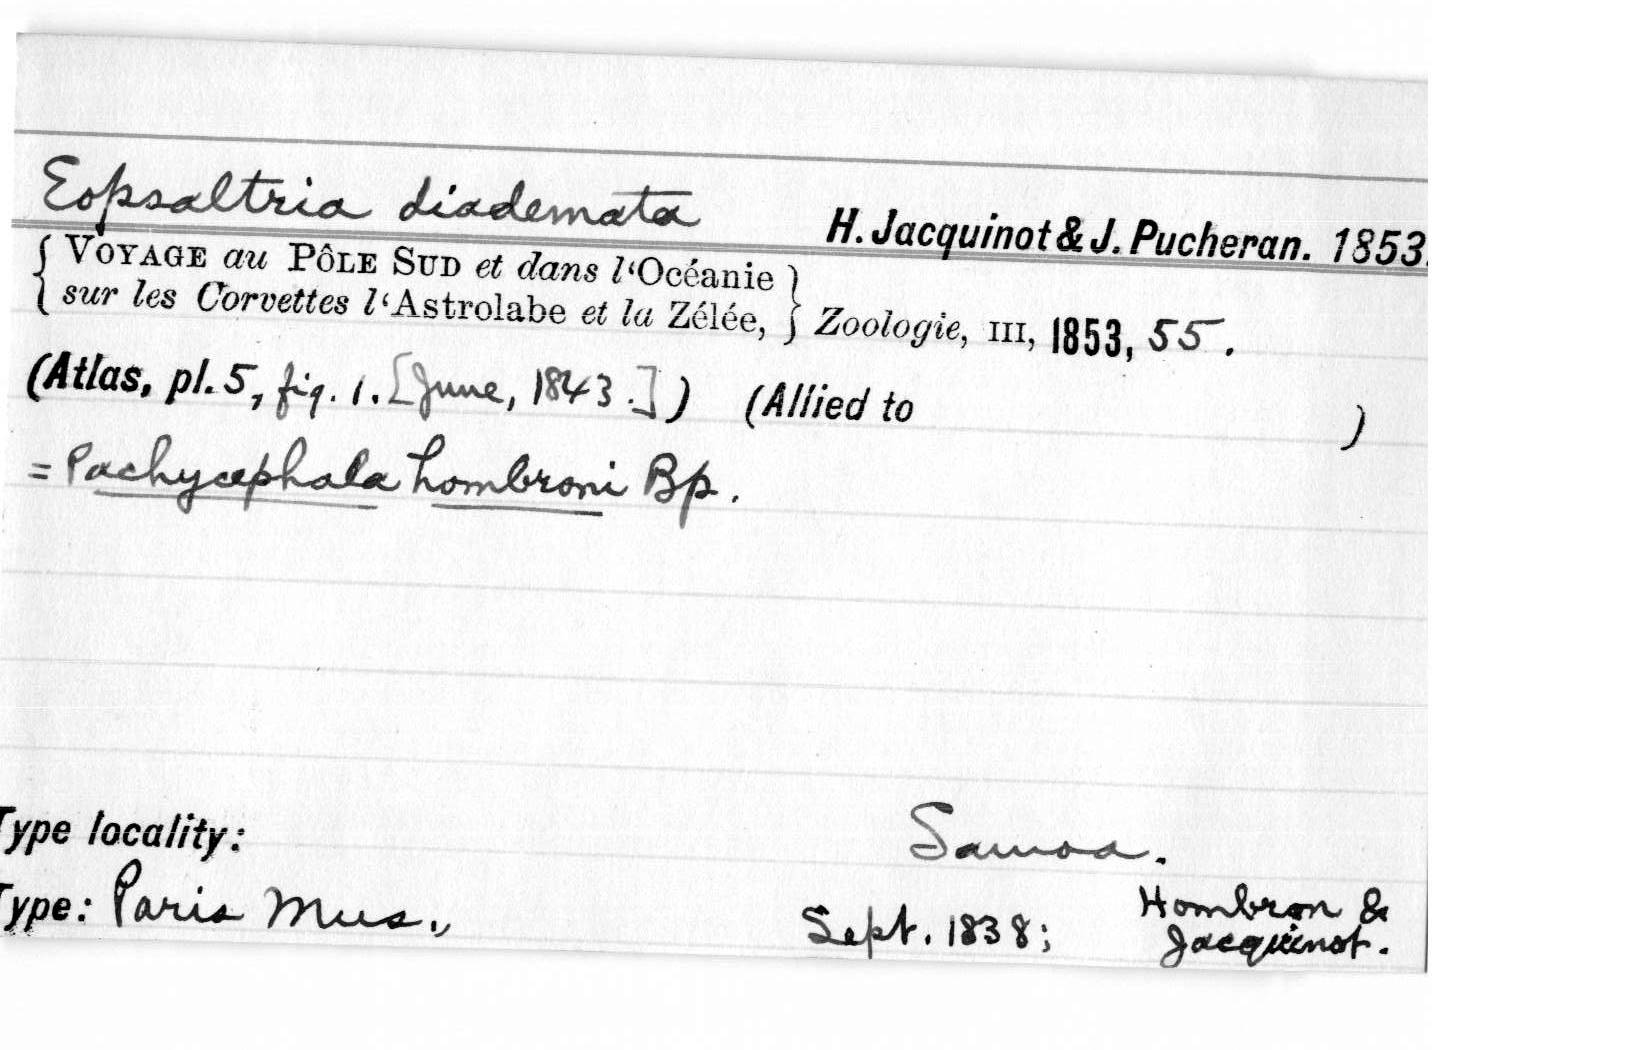 Eopsaltria diademata H. Jacquinot & J. Pucheran. 1853.
{ VOYAGE au PÔLE SUD et dans l'Océanie }
{ sur les Corvettes l'Astrolabe et la Zélée, } Zoologie, III, 1853, 55.
(Atlas, pl. 5, fig. 1. [June, 1843.]) (Allied to )
= Pachycephala hombroni Bp.
Type locality: Samoa.
Type: Paris Mus., Sept. 1838; Hombron &
Jacquinot.